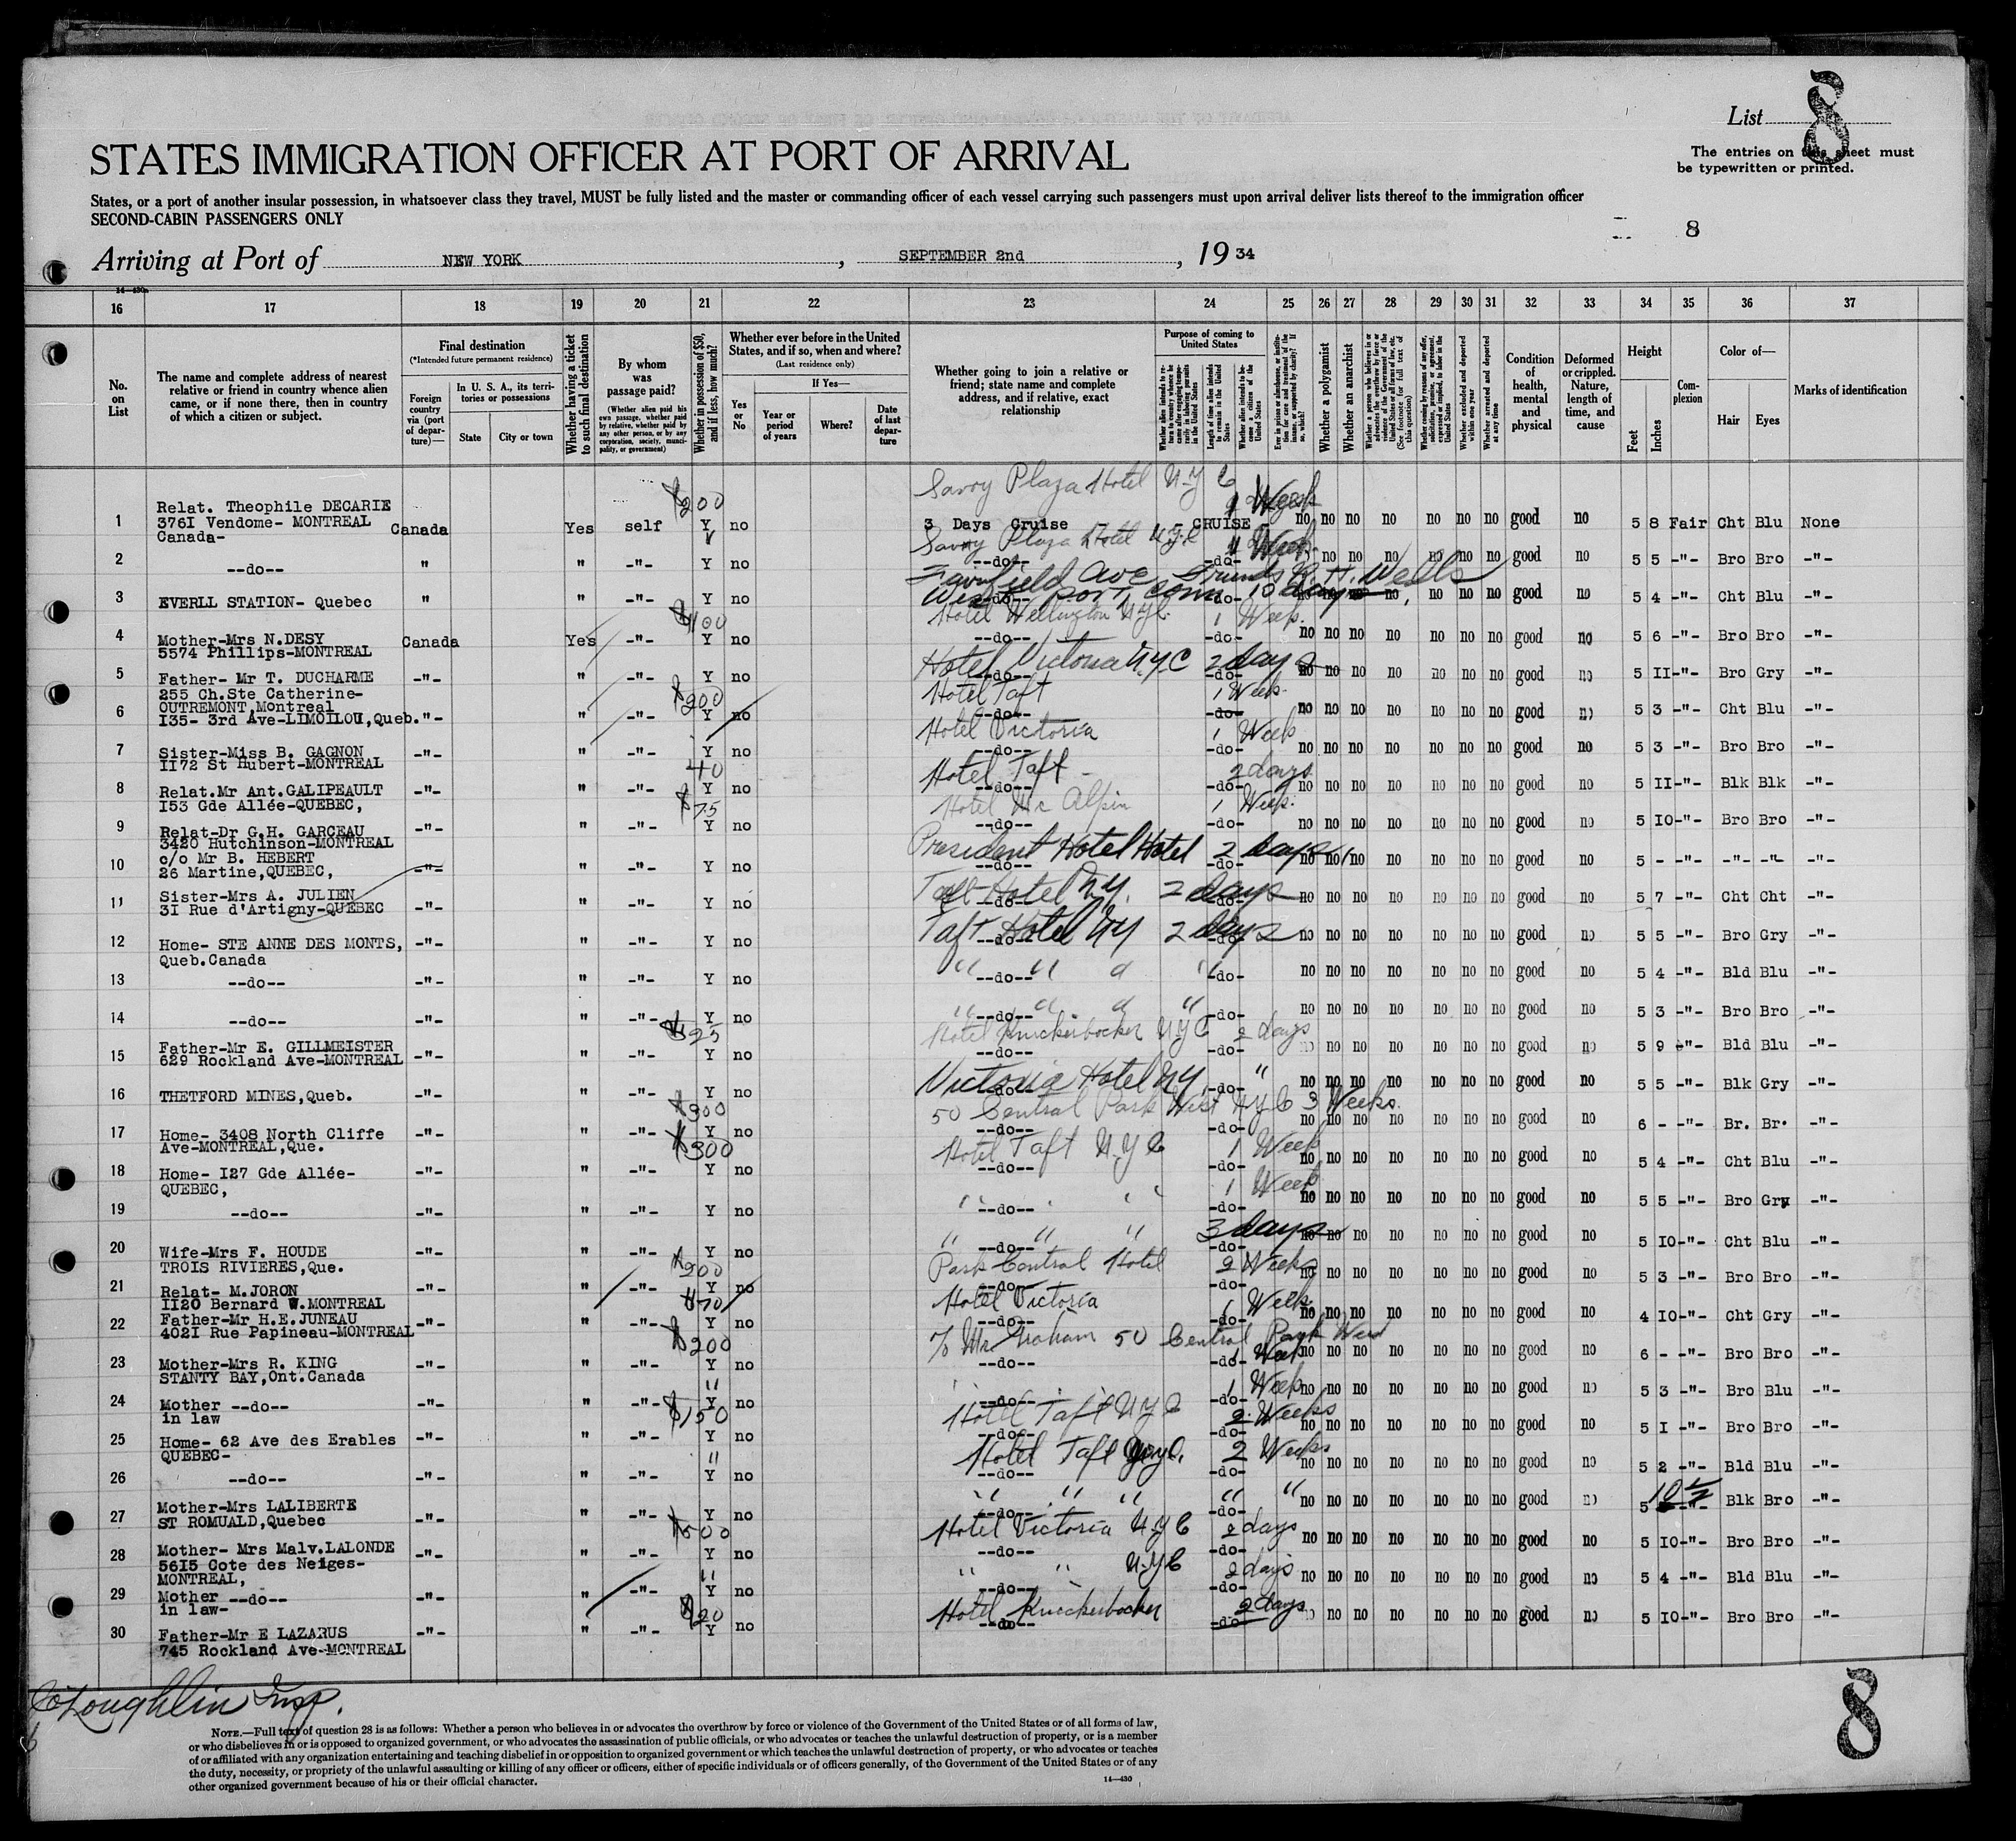 List 8
The entries on this sheet must
be typewritten or printed.
STATES IMMIGRATION OFFICER AT PORT OF ARRIVAL
States, or a port of another insular possession, in whatsoever class they travel, MUST be fully listed and the master or commanding officer of each vessel carrying such passengers must upon arrival deliver lists thereof to the immigration officer
SECOND-CABIN PASSENGERS ONLY
8
Arriving at Port of NEW YORK, SEPTEMBER 2nd, 1934
16 17 18 19 20 21 22 23 24 25 26 27 28 29 30 31 32 33 34 35 36 37
No. on List
The name and complete address of nearest relative or friend in country whence alien came, or if none there, then in country of which a citizen or subject.
Final destination
(*Intended future permanent residence)
Foreign country via (port of departure)—
In U. S. A., its territories or possessions
State
City or town
Whether having a ticket to such final destination
By whom was passage paid?
(Whether alien paid his own passage, whether paid by relative, whether paid by any other person, or by any corporation, society, municipality, or government)
Whether in possession of $50, and if less, how much?
Whether ever before in the United States, and if so, when and where?
(Last residence only)
Yes or No
If Yes—
Year or period of years
Where?
Date of last departure
Whether going to join a relative or friend; state name and complete address, and if relative, exact relationship
Purpose of coming to United States
Whether alien intends to return to country whence he came after engaging temporarily in laboring pursuits in the United States
Length of time alien intends to remain in the United States
Whether alien intends to become a citizen of the United States
Ever in prison or almshouse, or institution for care and treatment of the insane, or supported by charity? If so, which?
Whether a polygamist
Whether an anarchist
Whether excluded and deported within one year
Whether arrested and deported at any time
Condition of health, mental and physical
Deformed or crippled. Nature, length of time, and cause
Height
Feet
Inches
Complexion
Color of—
Hair
Eyes
Marks of identification
Savoy Plaza Hotel N.Y.C
1 Relat. Theophile DECARIE
376I Vendome- MONTREAL
Canada- Canada Yes self $200 Y no 3 Days Cruise - CRUISE - no no no no no no no good no 5 8 Fair Cht Blu None
Savoy Plaza Hotel N.Y.C
2 --do-- " " -"- Y no --do-- -do- no no no no no no good no 5 5 -"- Bro Bro -"-
Westport, Conn 10 days
3 EVERLL STATION- Quebec " " -"- Y no --do-- -do- no no no no no no no good no 5 4 -"- Cht Blu -"-
Hotel Wellington N.Y.C. 1 Week.
4 Mother-Mrs N.DESY
5574 Phillips-MONTREAL Canada Yes -"- $100 Y no --do-- -do- no no no no no no no good no 5 6 -"- Bro Bro -"-
Hotel Victoria N.Y.C 2 days
5 Father- Mr T. DUCHARME
255 Ch.Ste Catherine-
OUTREMONT,Montreal -"- " -"- Y no --do-- -do- no no no no no no no good no 5 II -"- Bro Gry -"-
Hotel Taft 1 Week.
6 I35- 3rd Ave-LIMOILOU,Queb. -"- " -"- $200 Y no --do-- -do- no no no no no no no good no 5 3 -"- Cht Blu -"-
Hotel Victoria 1 Week
7 Sister-Miss B. GAGNON
II72 St Hubert-MONTREAL -"- " -"- Y no --do-- -do- no no no no no no no good no 5 3 -"- Bro Bro -"-
Hotel Taft - 2 days
8 Relat.Mr Ant.GALIPEAULT
I53 Gde Allée-QUEBEC, -"- " -"- 40 Y no --do-- -do- no no no no no no no good no 5 II -"- Blk Blk -"-
Hotel Mc Alpin 1 Week.
9 Relat-Dr G.H. GARCEAU
3420 Hutchinson-MONTREAL -"- " -"- $75 Y no --do-- -do- no no no no no no no good no 5 IO -"- Bro Bro -"-
President Hotel Hotel 2 days
10 c/o Mr B. HEBERT
26 Martine,QUEBEC, -"- " -"- Y no --do-- -do- no no no no no no no good no 5 - -"- -"- -"- -"-
Taft Hotel N.Y. 2 days
11 Sister-Mrs A. JULIEN
3I Rue d'Artigny-QUEBEC -"- " -"- Y no --do-- -do- no no no no no no no good no 5 7 -"- Cht Cht -"-
Taft Hotel N.Y 2 days
12 Home- STE ANNE DES MONTS,
Queb.Canada -"- " -"- Y no --do-- -do- no no no no no no no good no 5 5 -"- Bro Gry -"-
13 --do-- -"- " -"- Y no --do-- -do- no no no no no no no good no 5 4 -"- Bld Blu -"-
14 --do-- -"- " -"- Y no --do-- -do- no no no no no no no good no 5 3 -"- Bro Bro -"-
Hotel Knickerbocker N.Y.C 2 days
15 Father-Mr E. GILLMEISTER
629 Rockland Ave-MONTREAL -"- " -"- $25 Y no --do-- -do- no no no no no no no good no 5 9 -"- Bld Blu -"-
Victoria Hotel N.Y. "
16 THETFORD MINES,Queb. -"- " -"- Y no --do-- -do- no no no no no no no good no 5 5 -"- Blk Gry -"-
50 Central Park West N.Y.C 3 Weeks.
17 Home- 3408 North Cliffe
Ave-MONTREAL,Que. -"- " -"- $300 Y no --do-- -do- no no no no no no no good no 6 - -"- Br. Br. -"-
Hotel Taft N.Y.C 1 Week
18 Home- I27 Gde Allée-
QUEBEC, -"- " -"- $300 Y no --do-- -do- no no no no no no no good no 5 4 -"- Cht Blu -"-
1 Week
19 --do-- -"- " -"- Y no --do-- -do- no no no no no no no good no 5 5 -"- Bro Gry -"-
" " " 3 days
20 Wife-Mrs F. HOUDE
TROIS RIVIERES,Que. -"- " -"- Y no --do-- -do- no no no no no no no good no 5 IO -"- Cht Blu -"-
Park Central Hotel 2 Weeks
21 Relat- M.JORON
II20 Bernard W.MONTREAL -"- " -"- $200 Y no --do-- -do- no no no no no no no good no 5 3 -"- Bro Bro -"-
Hotel Victoria 1 Week
22 Father-Mr H.E.JUNEAU
402I Rue Papineau-MONTREAL -"- " -"- $70 Y no --do-- -do- no no no no no no no good no 4 IO -"- Cht Gry -"-
c/o Mr. Graham 50 Central Park West
1 Week
23 Mother-Mrs R. KING
STANTY BAY,Ont.Canada -"- " -"- $200 Y no --do-- -do- no no no no no no no good no 6 - -"- Bro Bro -"-
1 Week
24 Mother --do--
in law -"- " -"- " Y no --do-- -do- no no no no no no no good no 5 3 -"- Bro Blu -"-
Hotel Taft N.Y.C 2 Weeks
25 Home- 62 Ave des Erables
QUEBEC- -"- " -"- $150 Y no --do-- -do- no no no no no no no good no 5 I -"- Bro Bro -"-
Hotel Taft N.Y.C. 2 Weeks
26 --do-- -"- " -"- " Y no --do-- -do- no no no no no no no good no 5 2 -"- Bld Blu -"-
" " " " "
27 Mother-Mrs LALIBERTE
ST ROMUALD,Quebec -"- " -"- Y no --do-- -do- no no no no no no no good no 5 10½ -"- Blk Bro -"-
Hotel Victoria N.Y.C 2 days
28 Mother- Mrs Malv.LALONDE
56I5 Cote des Neiges-
MONTREAL, -"- " -"- $500 Y no --do-- -do- no no no no no no no good no 5 IO -"- Bro Bro -"-
" " N.Y.C 2 days
29 Mother --do--
in law- -"- " -"- " Y no --do-- -do- no no no no no no no good no 5 4 -"- Bld Blu -"-
Hotel Knickerbocker 2 days
30 Father-Mr E LAZARUS
745 Rockland Ave-MONTREAL -"- " -"- $20 Y no --do-- -do- no no no no no no no good no 5 IO -"- Bro Bro -"-
O'Loughlin Insp.
8
NOTE.—Full text of question 28 is as follows: Whether a person who believes in or advocates the overthrow by force or violence of the Government of the United States or of all forms of law,
or who disbelieves in or is opposed to organized government, or who advocates the assassination of public officials, or who advocates or teaches the unlawful destruction of property, or is a member
of or affiliated with any organization entertaining and teaching disbelief in or opposition to organized government or which teaches the unlawful destruction of property, or who advocates or teaches
the duty, necessity, or propriety of the unlawful assaulting or killing of any officer or officers, either of specific individuals or of officers generally, of the Government of the United States or of any
other organized government because of his or their official character.
14—430